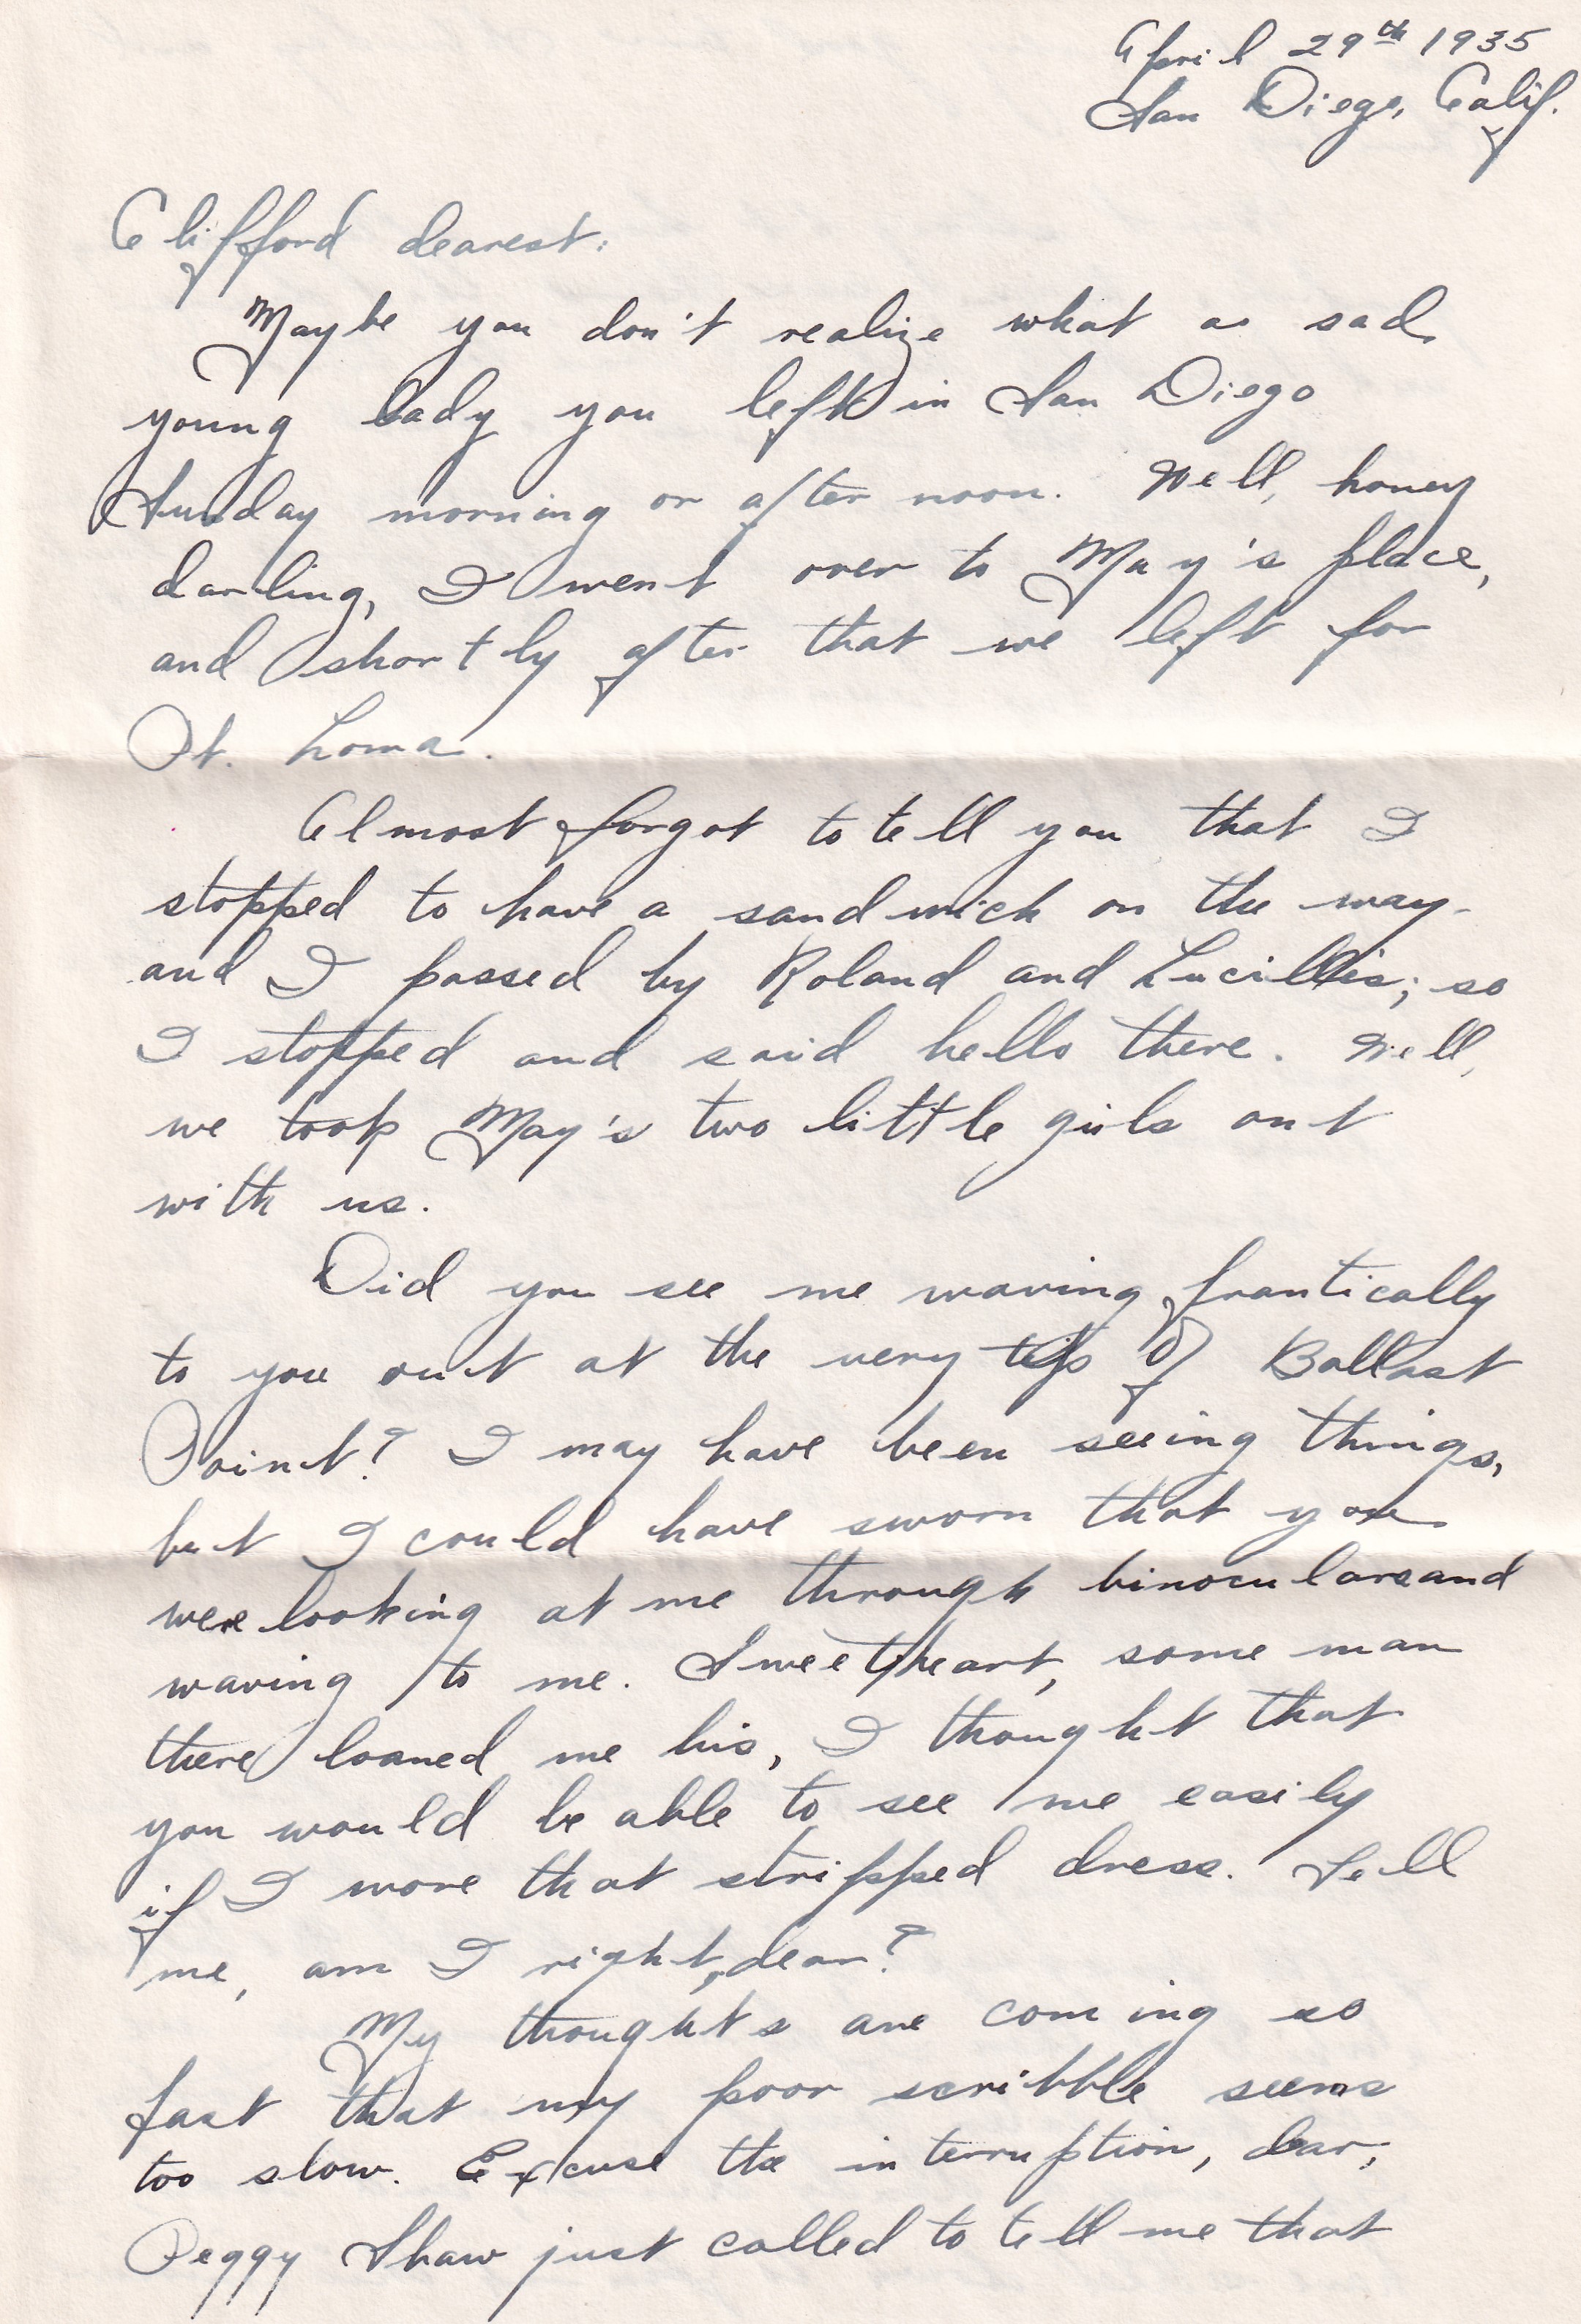 April 29th 1935
San Diego, Calif.
Clifford dearest:
Maybe you don't realize what a sad
young lady you left in San Diego
Sunday morning or after noon. Well, honey
darling, I went over to May's place,
and shortly after that we left for
Pt. Loma.
Almost forgot to tell you that I
stopped to have a sandwich on the way-
and I passed by Roland and Lucilles; so
I stopped and said hello there. Well,
we took May's two little girls out
with us.
Did you see me waving frantically
to you out at the very tip of Ballast
Point? I may have been seeing things,
but I could have sworn that you
were looking at me through binoculars and
waving to me. Sweetheart, some man
there loaned me his, I thought that
you would be able to see me easily
if I wore that stripped dress. Tell
me, am I right, dear?
My thoughts are coming so
fast that my poor scribble seems
too slow. Excuse the interruption, dear,
Peggy Shaw just called to tell me that